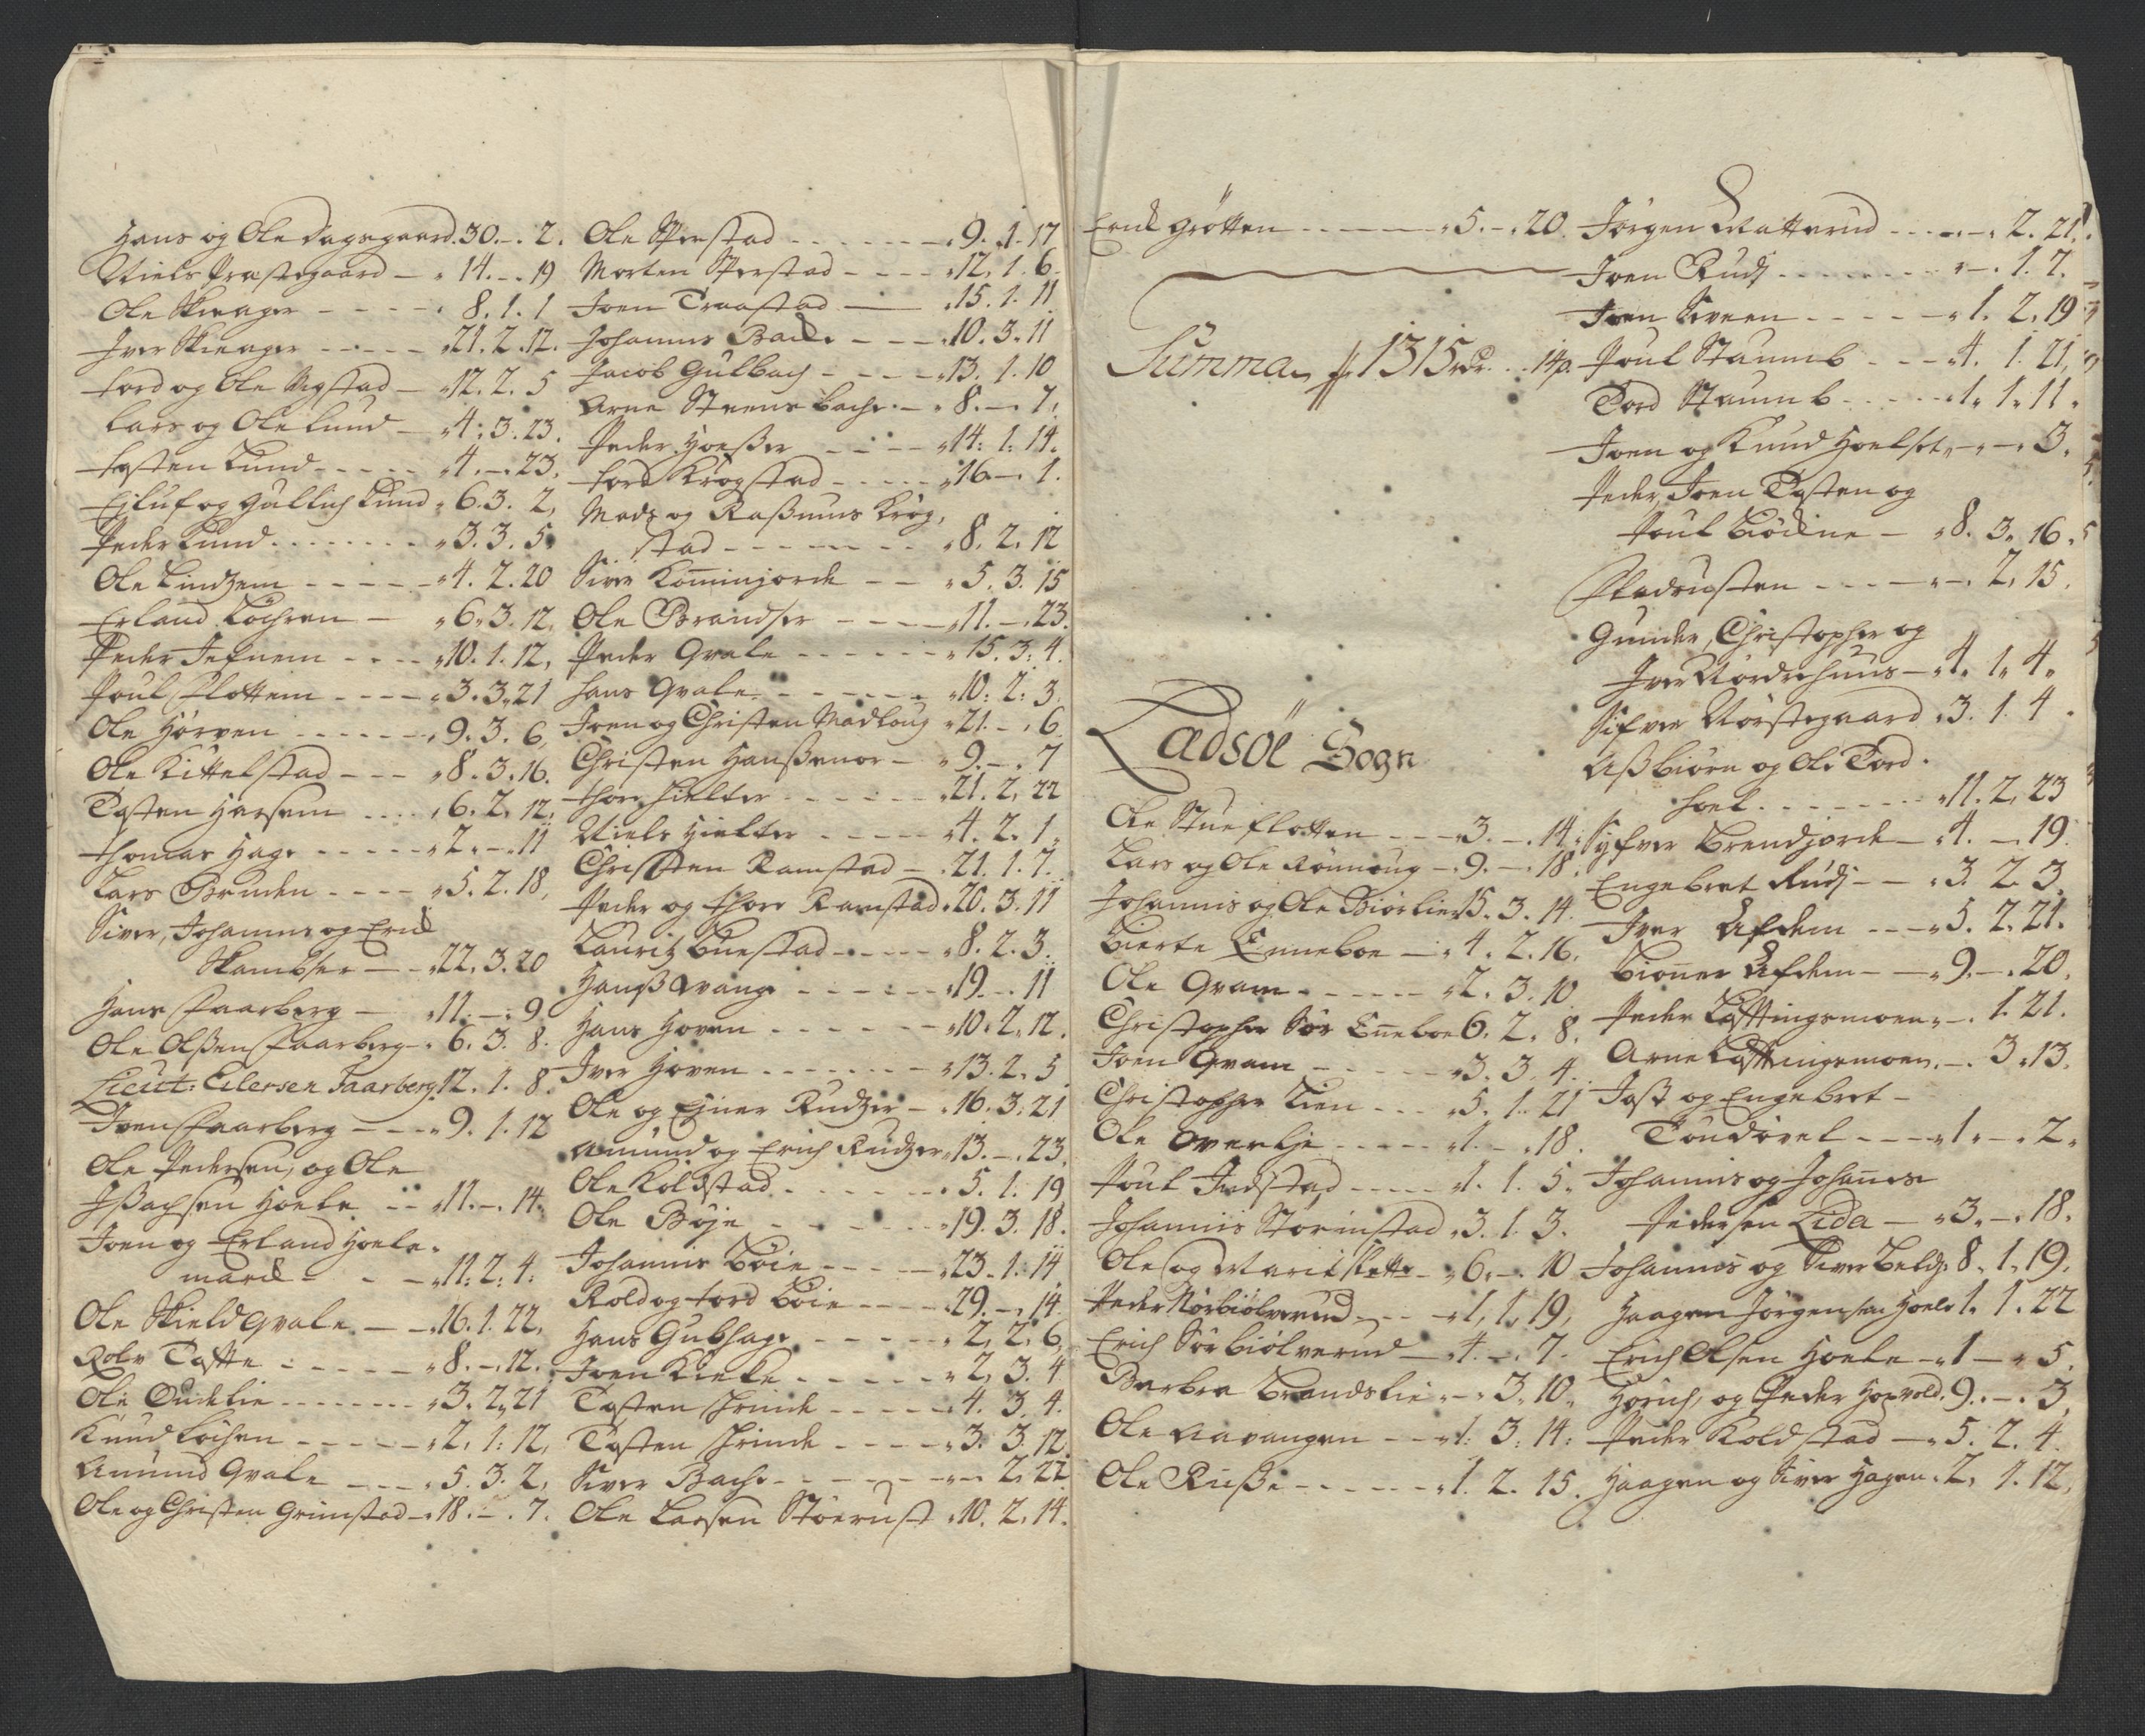 Hans og Ole Dagsgaard . 30. - . 2.
Niels Præstegaard - . 14. - . 19
Ole Skieager - - - - . 8. 1. 1
Iver Skieager - - - - . 21. 2. 12.
Tord og Ole Wigstad - . 12. 2. 5
Lars og Ole Lund - . 4. 3. 23.
Tosten Lund - - - - . 4. - . 23.
Ejluf og Gullich Lund . 6. 3. 2,
Peder Lund . . . . . . . 3. 3. 5.
Ole Lindzem - - - - - . 4. 2. 20
Erland Løchren - . 6. 3. 12.
Peder Jefnem - - - - . 10. 1. 12,
Poul Flottem - - - - . 3. 3. 21
Ole Hørven - - - - - - . 9. 3. 6,
Ole Kittelstad - - - . 8. 3. 16.
Tosten Harsem - - - . 6. 2. 12.
Thomas Hage - - - - - . 2. - . 11
Lars Brenden - - - - . 5. 2. 18,
Siver, Johannis og Erich
Skambser - - . 22. 3. 20
Hans Faarberg - . 11. - . 9.
Ole Olsen Faarberg - . 6. 3. 8.
Lieut: Eilersen Faarberg . 12. 1. 8.
Joen Faarberg - - - . 9. 1. 12
Ole Pedersen, og Ole
Issachsen Hoele - - . 11. - . 14.
Joen og Erland Hoele-
march - - - - . 11. 2. 4.
Ole Skieldqvale - - . 16. 1. 22,
Rolv Tofte - - - - - . 8. - . 12.
Ole Oudelie - - - - - - . 3. 2. 21
Knud Løchen - - - - - . 2. 1. 12,
Amund Qvale - - - - . 5. 3. 2,
Ole og Christen Grimstad - . 18. - . 7.
Ole Sperstad - - - - - - . 9. 1. 17
Morten Sperstad - - - - . 12. 1. 6.
Joen Traastad - - . 15. 1. 11
Johannis Backe - - - . 10. 3. 11
Jacob Gulbach - - - - . 13. 1. 10
Arne Steensbache - . 8. - . 7,
Peder Hoesser - - - - . 14. 1. 14.
Tord Krogstad - - - - . 16. - . 1.
Mads og Rassmus Krog,
stad - - - - - - - . 8. 2. 12
Siver Kominjorde - - . 5. 3. 15
Ole Brandser - - - - . 11. - . 23.
Peder Qvale - - - - - - . 15. 3. 4.
Hans Qvale - - - - - - . 10. 2. 3.
Joen og Christen Madtoug . 21. - . 6.
Christen Hanssenor - . 9. - . 7
Thore Hielter - - - - - . 21. 2, 22
Niels Hielter - - - - - . 4. 2. 1.
Christen Ramstad - . 21. 1. 7.
Peder og Thore Ramstad . 20. 3. 11
Lauritz Buestad - - - - . 8. 2. 3.
Hanss Wange - - - - - . 19. - . 11
Hans Hoven - - - - - - . 10. 2. 12.
Iver Hoven - - - - - - . 13. 2. 5
Ole og Ejner Rudzer - . 16. 3. 21
Amund og Erich Rudzer . 13. - . 23.
Ole Koldstad - - - - - - . 5. 1. 19
Ole Bøje - - - - - - . 19. 3. 18.
Johannis Bøie - - - - . 23. 1. 14
Rold og Tord Bøie - - - . 29. - . 14.
Hans Gubhage - - - - - . 2. 2. 6.
Joen Kieke - - - - - . 2. 3. 4
Tosten Hrinde - - - - . 4. 3. 4.
Tosten Hrinde - - - - . 3. 3. 12.
Siver Bache - - - - - - - . 2. 22
Ole Larsen Stoerust . 10. 2. 14.
Erich Grøtten - - - - - - . 5. - . 20.
Summa - 1315 rdr. . . 14 p.
Ladsøe Sogn
Ole Stueflotten - - - . 3. - . 14.
Lars og Ole Rønnoug - . 9. - . 18.
Johannis og Ole Biørlie . 15. 3. 14.
Bierte Enneboe - . 4. 2. 16.
Ole Qvam - - - - - . 2. 3. 10.
Christopher Sør Enneboe 6. 2. 8.
Joen Qvam - - - - - . 3. 3. 4.
Christopher Lien - - - . 5. 1. 21
Ole Overlie - - - - . 1. - . 18.
Poul Indstad - - - - . 1. 1. 5.
Johannis Storinstad . 3. 1. 3.
Ole og Marit Slette - . 6. - . 10
Peder Nørbiølverud - - . 1, 1, 19,
Erich Sørbiølverud - . 4. - . 7.
Barbra Brandslie . - . 3. 10.
Ole Aavangen - - . 1. 3. 14.
Ole Russe - - - - - . 1. 2. 15.
Jørgen Matterud - - - . - . 2. 21.
Joen Ruds - - - - - - . - . 1. 7.
Joen Sveen - - - - - . 1. 2. 19
Poul Staumb - - - . 4. 1. 21,
Tord Staumb - - - - . 1. 1. 11.
Joen og Knud Hoelset . - . - . 3.
Peder, Joen Tosten og
Poul Bødne - . 8. 3. 16.
- - - - . - . 2, 15.
Gunder, Christopher og
Iver Nordrehuus - . 4. 1. 4.
Sifver Nørstegaard . 3. 1. 4.
Assbiørn og Ole Tord-
hoel - - - - - - . 11. 2. 23
Syfver Brendjorde - . 4. - . 19.
Engebret Ruds - - . 3. 2. 3.
Iver Afdem - - - . 5. 2. 21.
Bionner Afdem - - . 9. - . 20.
Peder Lesttingsmoen . - . 1. 21.
Arne Lesttingsmoen . - . 3. 13.
Jost og Engebret -
Toudøvel - - - - . 1. - . 2.
Johannis og Johanes
Pedersen Lida - . 3. - . 18.
Johannes og Siver Belch: 8. 1. 19.
Haagen Jørgensen Hoele 1. 1. 22
Erich Olsen Hoele - . 1 - . 5.
Horich, og Peder Hosvold . 9. - . 3.
Peder Koldstad - . 5. 2. 4.
Haagen og Siver Hagen . 2. 1. 12.